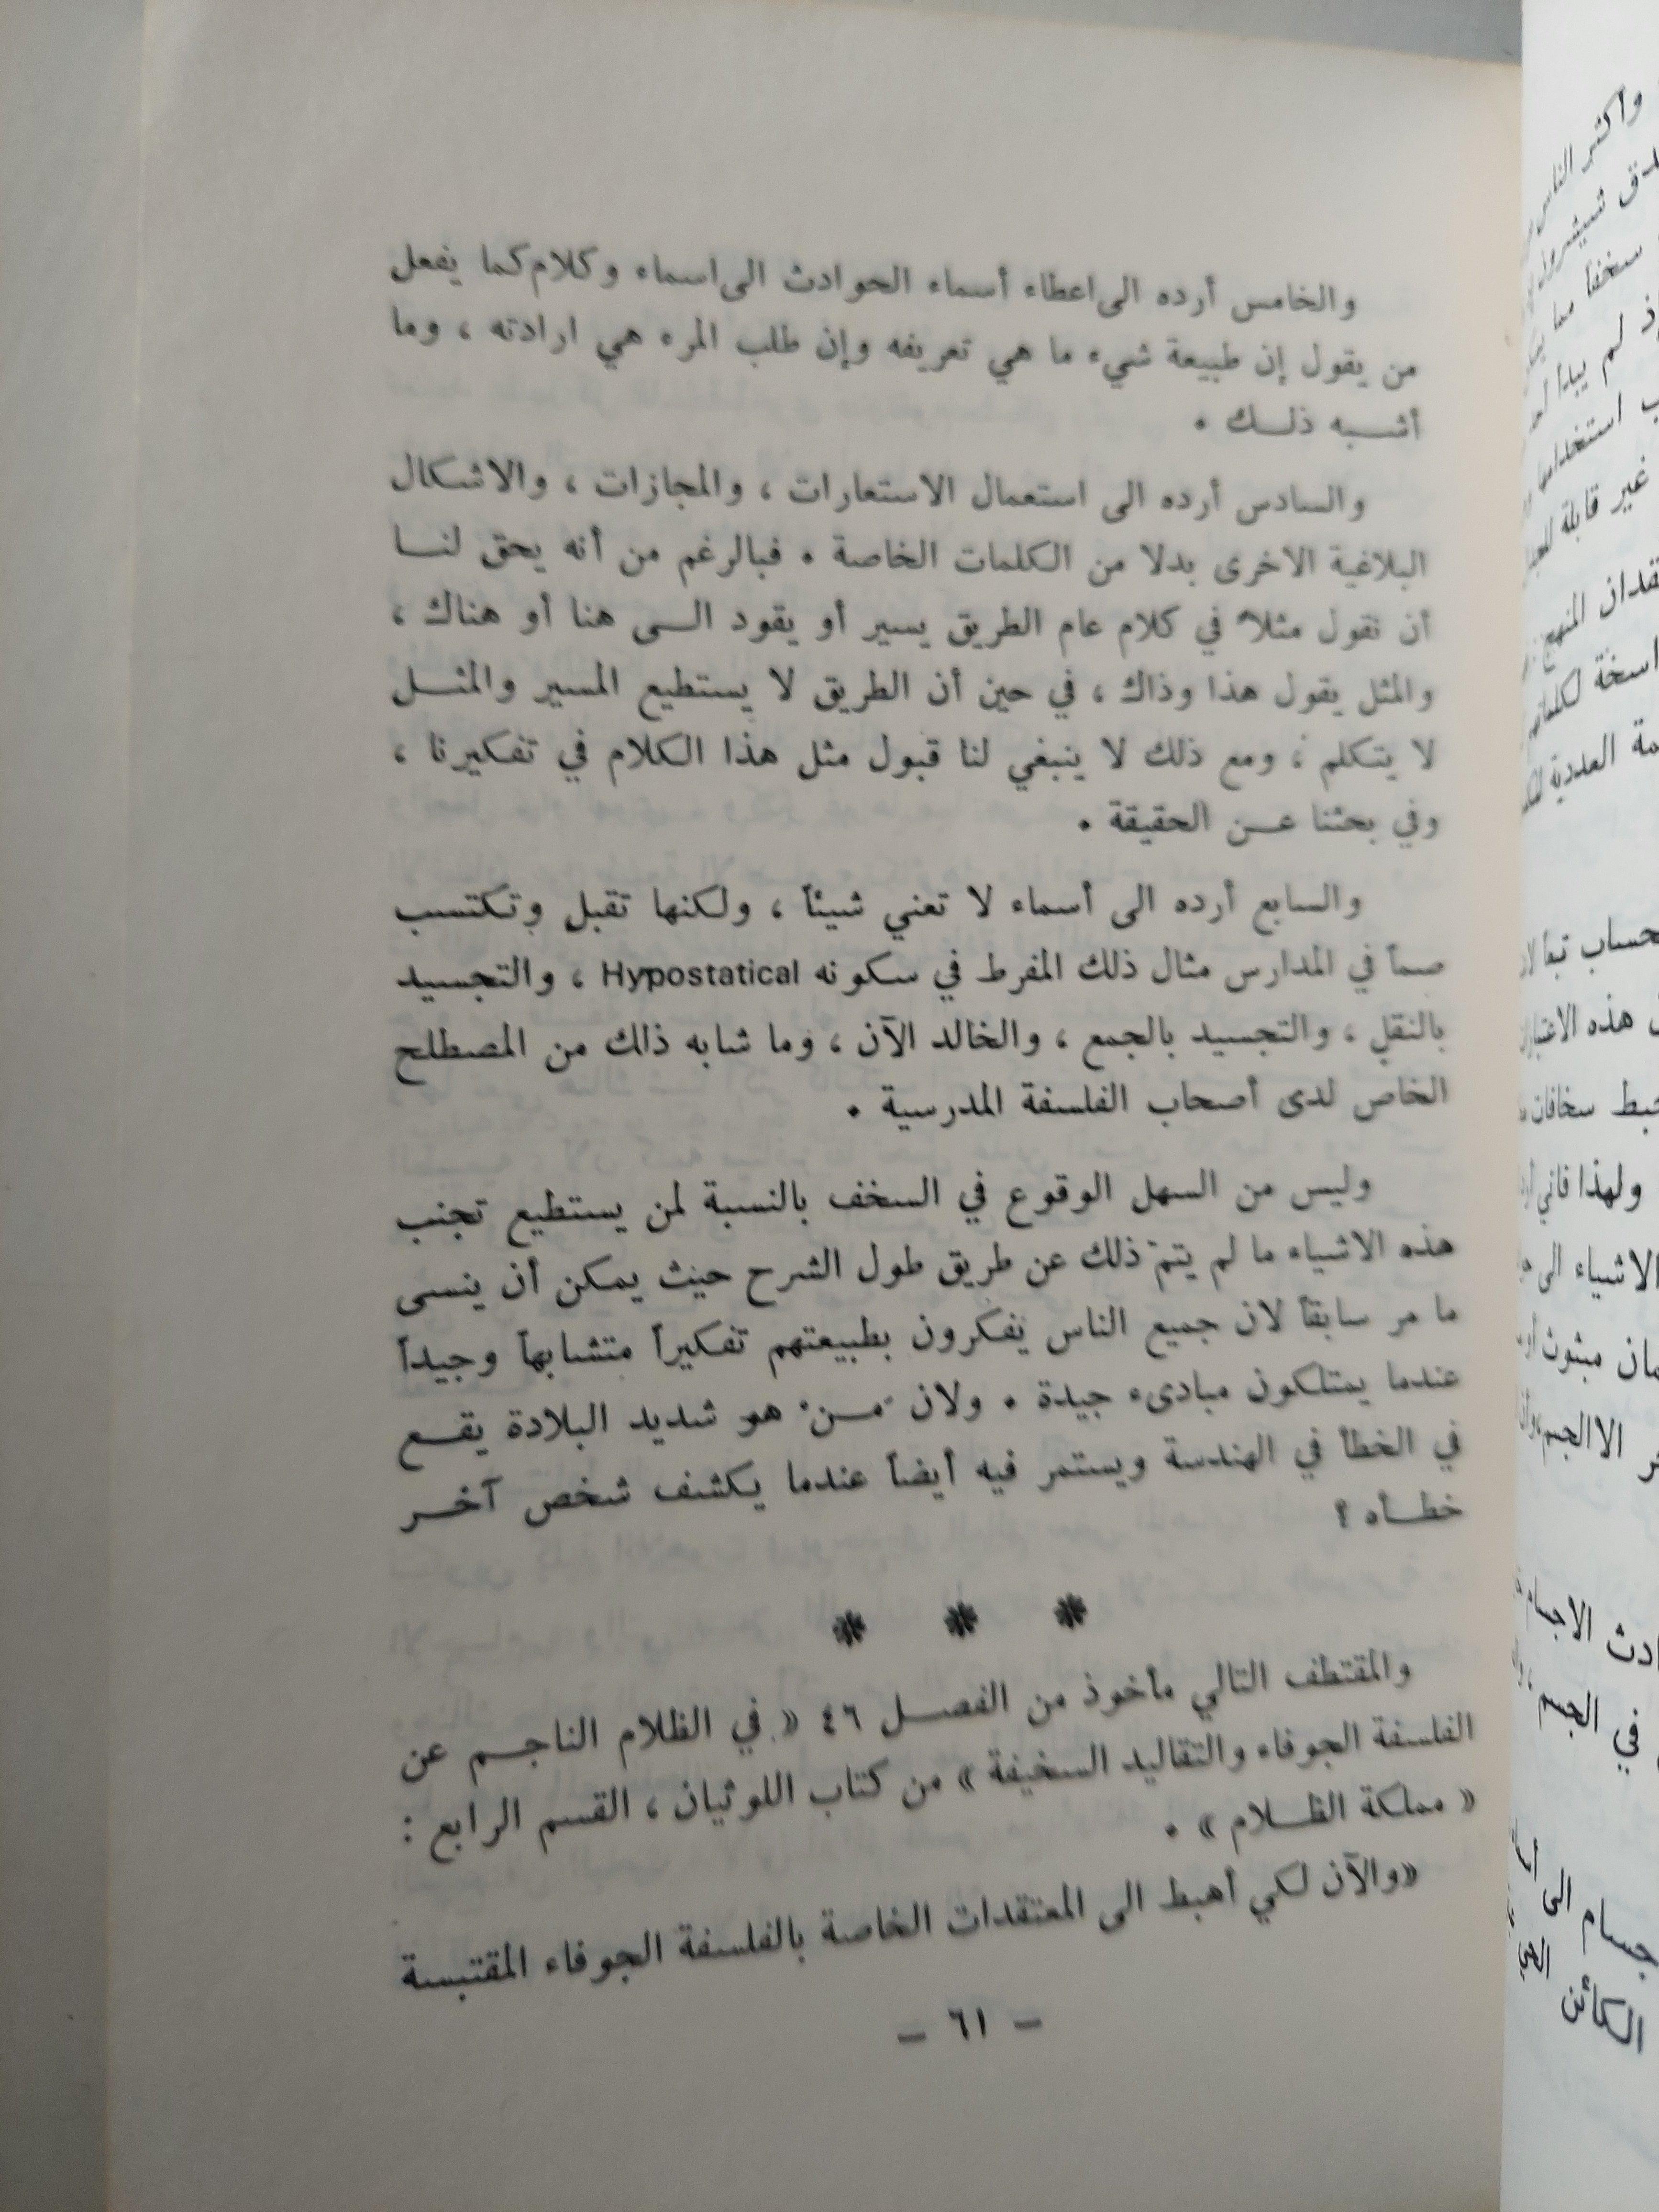 والخامس أرده الى اعطاء أسماء الحوادث الى اسماء وكلام كما يفعل
من يقول إن طبيعة شيء ما هي تعريفه وإن طلب المرء هي ارادته ، وما
أشبه ذلك .
والسادس أرده الى استعمال الاستعارات ، والمجازات ، والاشكال
البلاغية الاخرى بدلا من الكلمات الخاصة . فبالرغم من أنه يحق لنا
أن نقول مثلاً في كلام عام الطريق يسير أو يقود الى هنا أو هناك ،
والمثل يقول هذا وذاك ، في حين أن الطريق لا يستطيع المسير والمثل
لا يتكلم ، ومع ذلك لا ينبغي لنا قبول مثل هذا الكلام في تفكيرنا ،
وفي بحثنا عن الحقيقة .
والسابع أرده الى أسماء لا تعني شيئاً ، ولكنها تقبل وتكتسب
صماً في المدارس مثال ذلك المفرط في سكونه Hypostatical ، والتجسيد
بالنقل ، والتجسيد بالجمع ، والخالد الآن ، وما شابه ذلك من المصطلح
الخاص لدى أصحاب الفلسفة المدرسية .
وليس من السهل الوقوع في السخف بالنسبة لمن يستطيع تجنب
هذه الاشياء ما لم يتم ذلك عن طريق طول الشرح حيث يمكن أن ينسى
ما مر سابقاً لان جميع الناس يفكرون بطبيعتهم تفكيراً متشابهاً وجيداً
عندما يمتلكون مبادىء جيدة . ولان مَنْ هو شديد البلادة يقع
في الخطأ في الهندسة ويستمر فيه أيضاً عندما يكشف شخص آخر
خطأه ؟
* * *
والمقتطف التالي مأخوذ من الفصل ٤٦ « في الظلام الناجم عن
الفلسفة الجوفاء والتقاليد السخيفة » من كتاب اللوثيان ، القسم الرابع :
« مملكة الظلام » .
«والآن لكي أهبط الى المعتقدات الخاصة بالفلسفة الجوفاء المقتبسة
– ٦١ –
وأكثر الناس
سخفاً مما
لم يبدأ
استخدامها
غير قابلة
المنهج
العددية
تبعاً
هذه
سخافات
ولهذا فاني
الاشياء الى
مبثوث
الا الجسم
الاجسام
في الجسم
الى
الكائن الحي